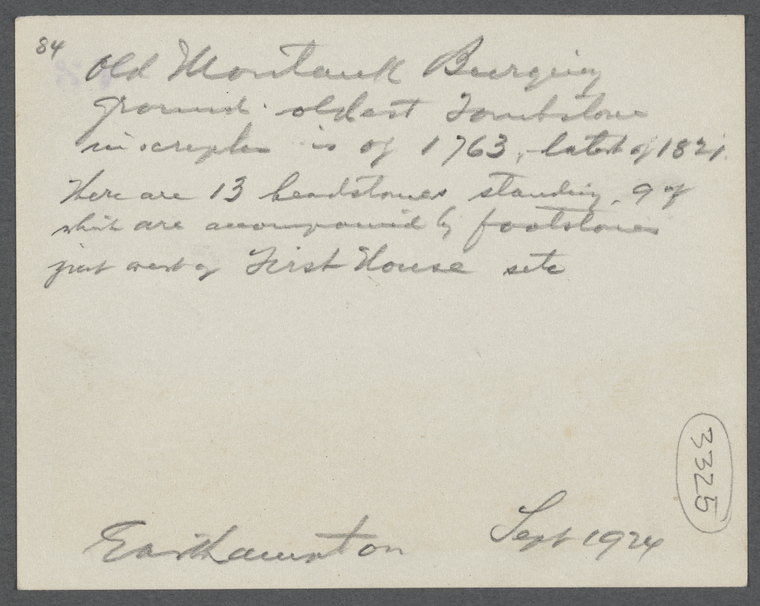 84
Old Montauk Burying
ground. oldest Tombstone
inscription is of 1763, latest of 1821.
There are 13 headstones standing, 9 of
which are accompanied by footstones
just west of First House site
Easthampton Sept 1924
3325